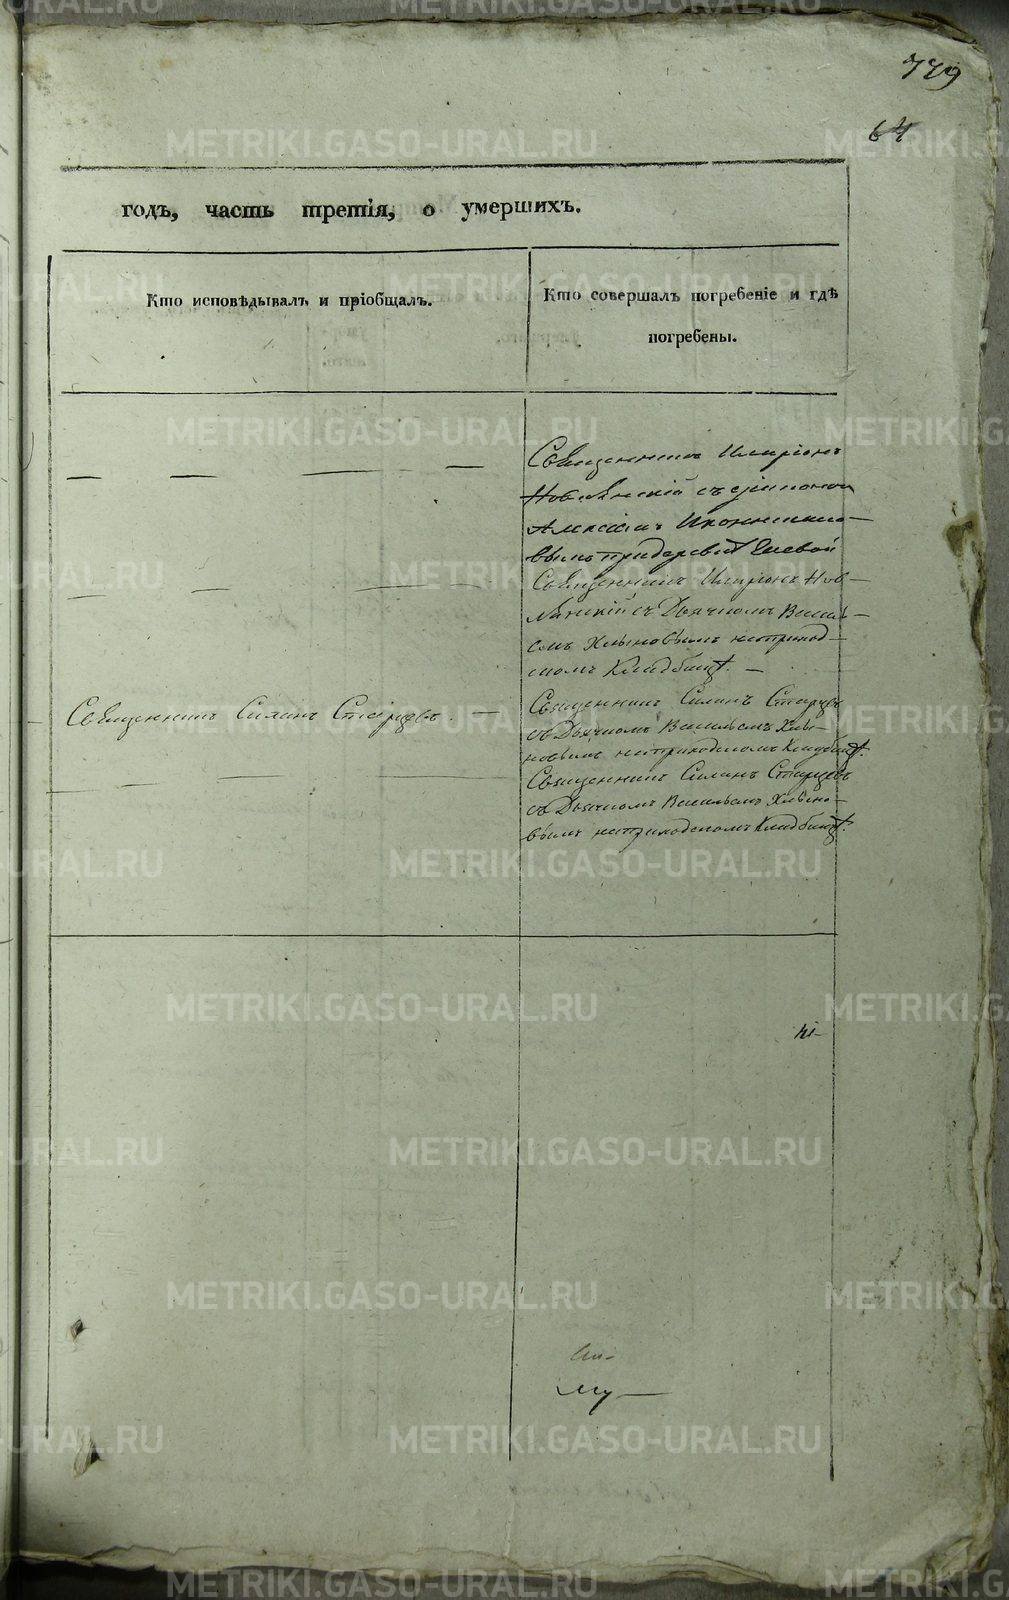 779
64
годъ, часть третія, о умершихъ.
Кто исповѣдывалъ и пріобщалъ.
Кто совершалъ погребеніе и гдѣ
погребены.
Священникъ Иларіонъ
Новлянскій съ
Алексіемъ Иконнико-
вымъ при деревнѣ
Священникъ Иларіонъ Нов-
лянскій съ Дьячкомъ Василь-
емъ Хлыновымъ на приход-
скомъ Кладбищѣ.
Священникъ Силинъ Старцевъ.
Священникъ Силинъ Старцевъ
съ Дьячкомъ Васильемъ Хлы-
новымъ на приходскомъ Кладбищѣ.
Священникъ Силинъ Старцевъ
съ Дьячкомъ Васильемъ Хлыно-
вымъ на приходскомъ Кладбищѣ.
METRIKI.GASO-URAL.RU